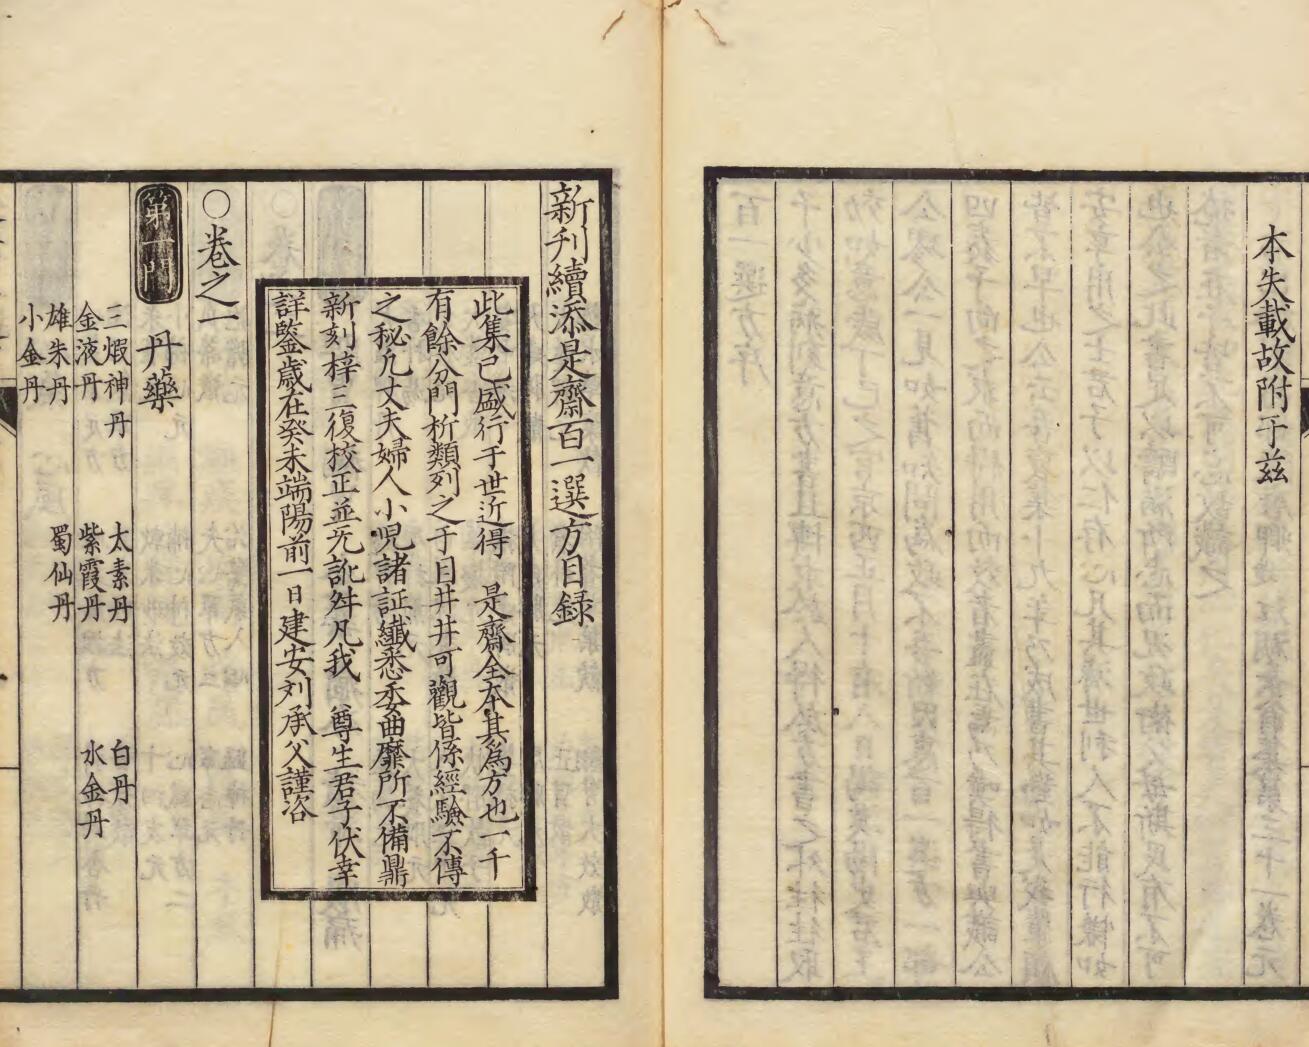 本失載故附于茲
新刋續添是齋百一選方目録
此集已盛行于世近得　是齋全本其為方也一千
有餘分門析類列之于目井井可觀皆係經驗不傳
之秘凢丈夫婦人小児諸証纎悉委曲靡所不備鼎
新刻梓三復校正並旡訛舛凡我　尊生君子伏幸
詳鑒歳在癸未端陽前一日建安刘承父謹咨
○卷之一
第一門　丹藥
三煆神丹　太素丹　白丹
金液丹　紫霞丹　水金丹
雄朱丹　蜀仙丹
小金丹